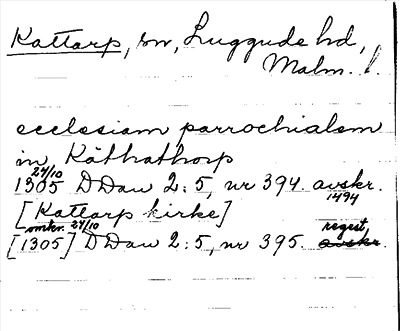 Kattarp, sn, Luggude hd,
Malm. l.
ecclesiam parrochialem
in Käthathorp
24/10
1305 DDan 2:5, nr 394. avskr.
1494
[Kattarp kirke]
omkr. 24/10 regest
[1305] DDan 2:5, nr 395. avskr.